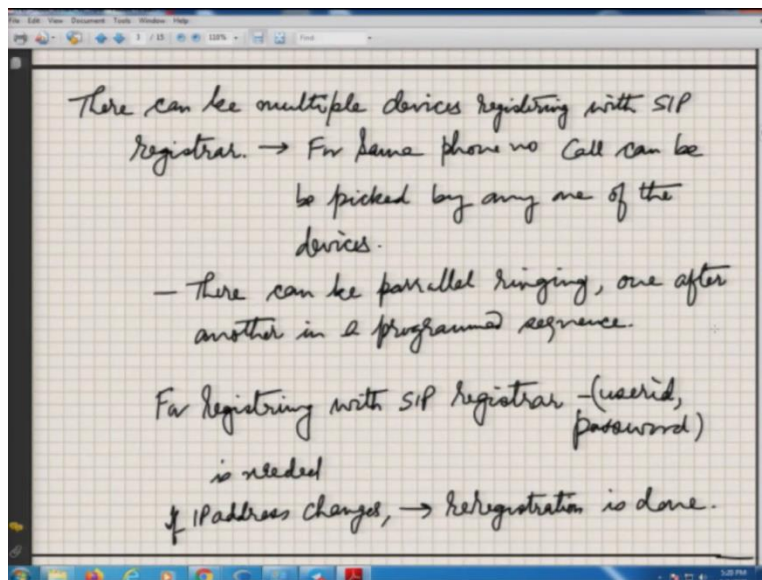 File Edit View Document Tools Window Help
3 / 15 118% Find
There can be multiple devices registering with SIP
registrar. → For Same phone no Call can be
be picked by any one of the
devices.
— There can be parrallel ringing, one after
another in a programmed sequence.
For Registring with SIP Registrar - (userid,
password)
is needed
If IP address changes, → reregistration is done.
5:20 PM